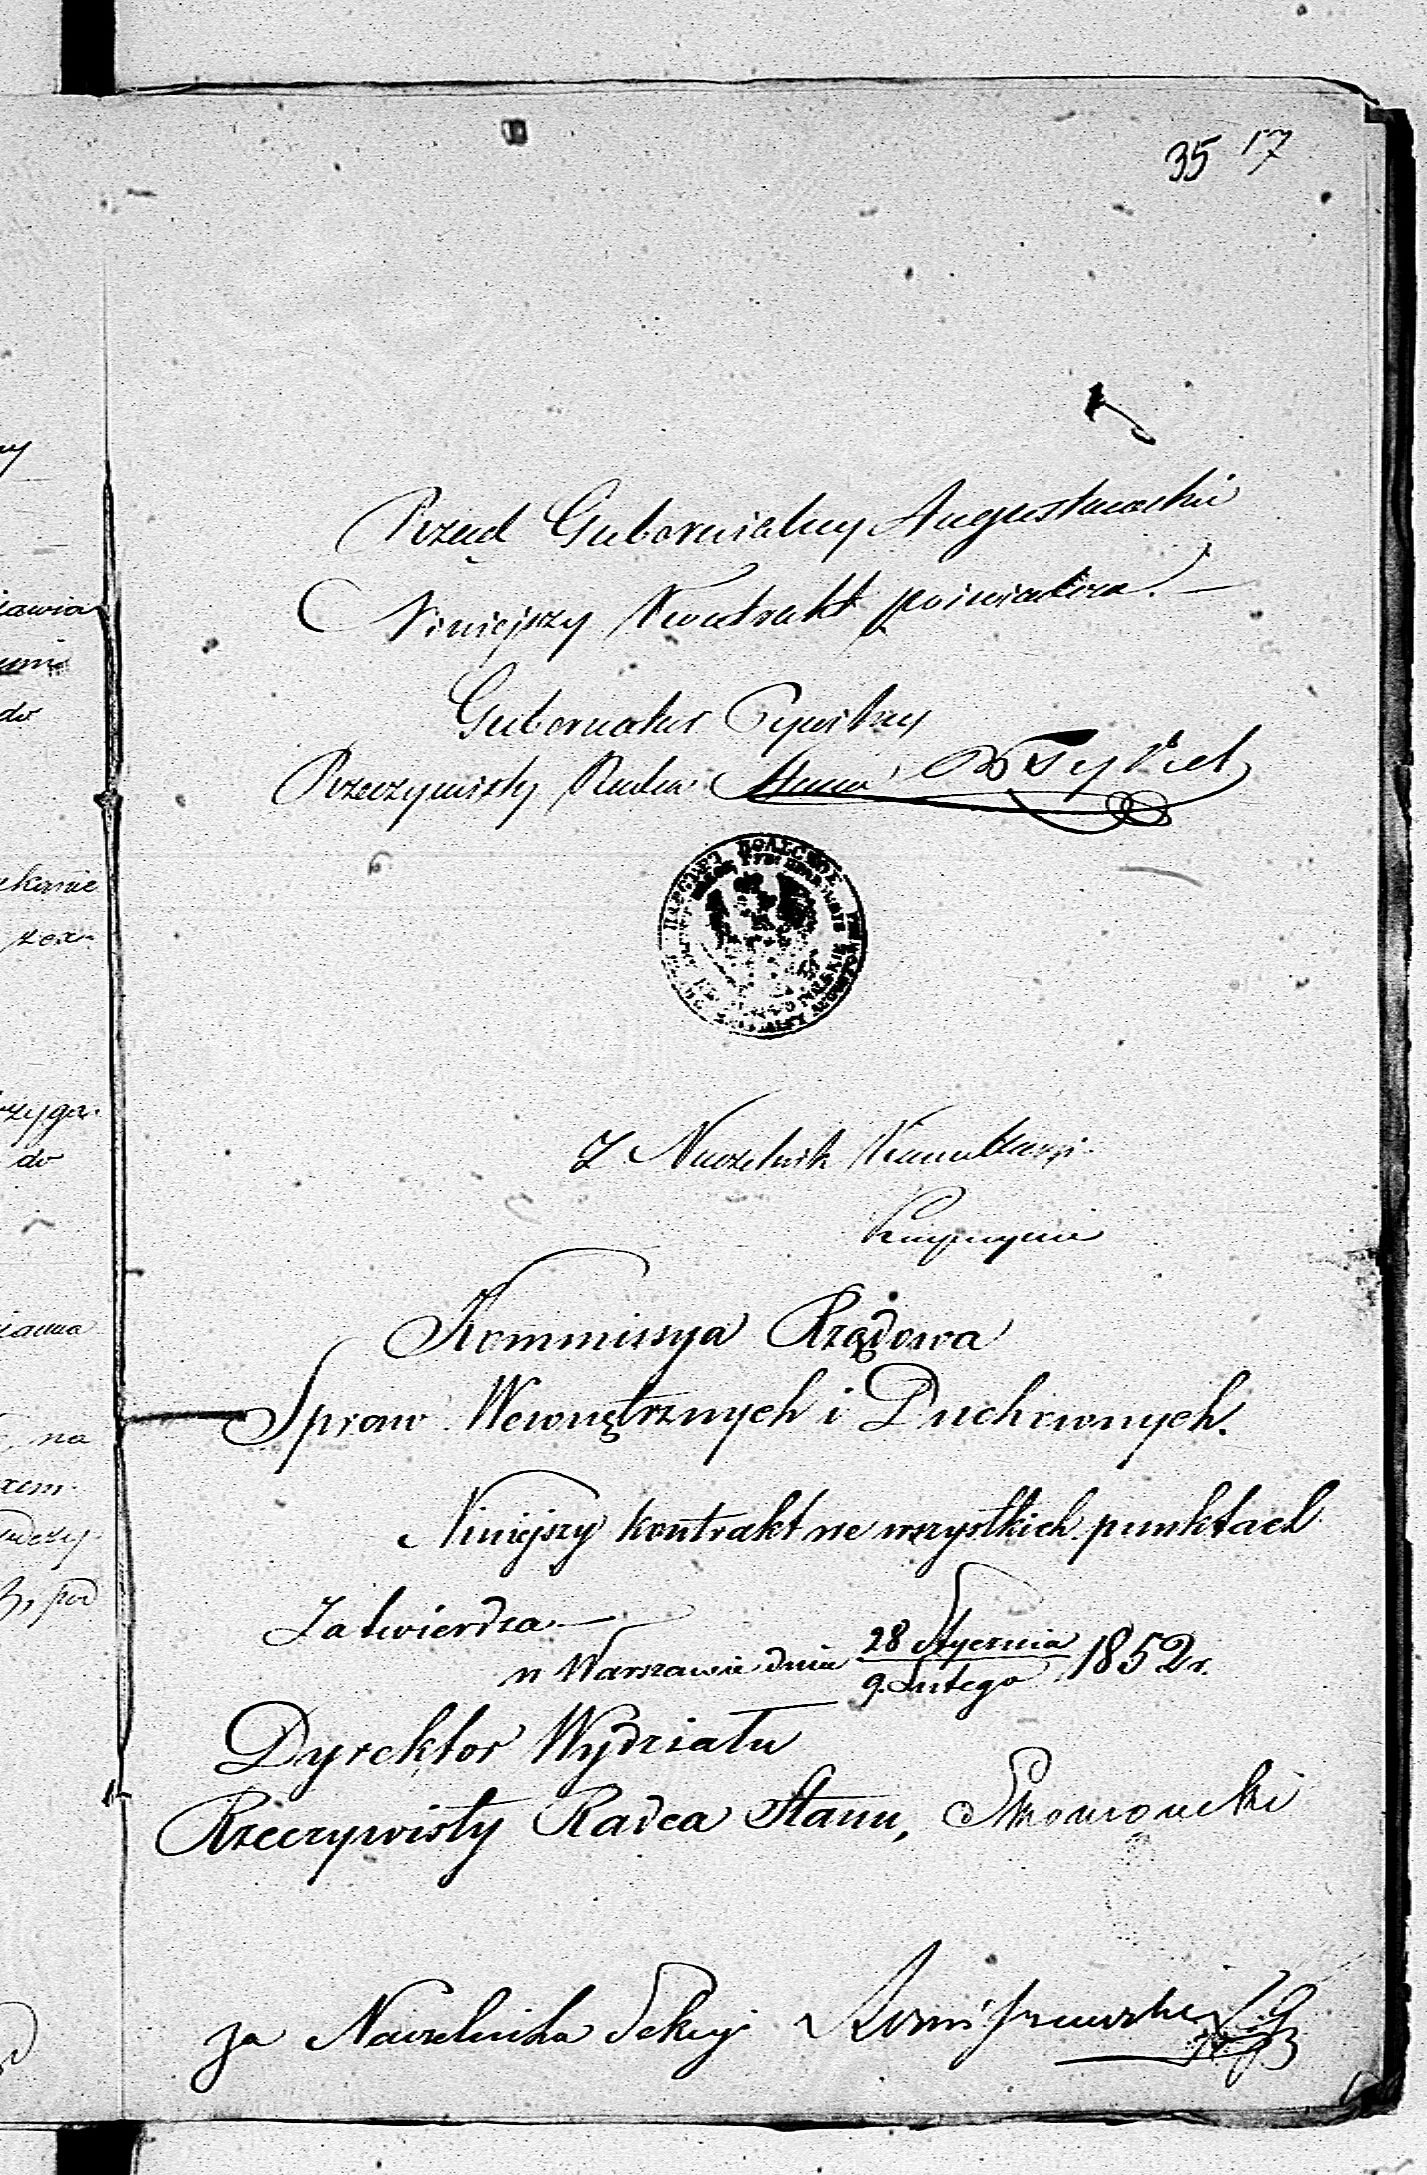 35 17
Rząd Gubernialny Augustowski
Niniejszy Kontrakt poświadcza.
Gubernator Cywilny
Rzeczywisty Radca Stanu
ЦАРСТВО ПОЛЬСКОЕ
Z. Naczelnik Kancellaryi
Kommissya Rządowa
Spraw Wewnętrznych i Duchownych.
Niniejszy kontrakt we wszystkich punktach
Zatwierdza
w Warszawie dnia 28 Stycznia
9. Lutego 1852 r.
Dyrektor Wydziału
Rzeczywisty Radca Stanu,
za Naczelnika Sekcyi